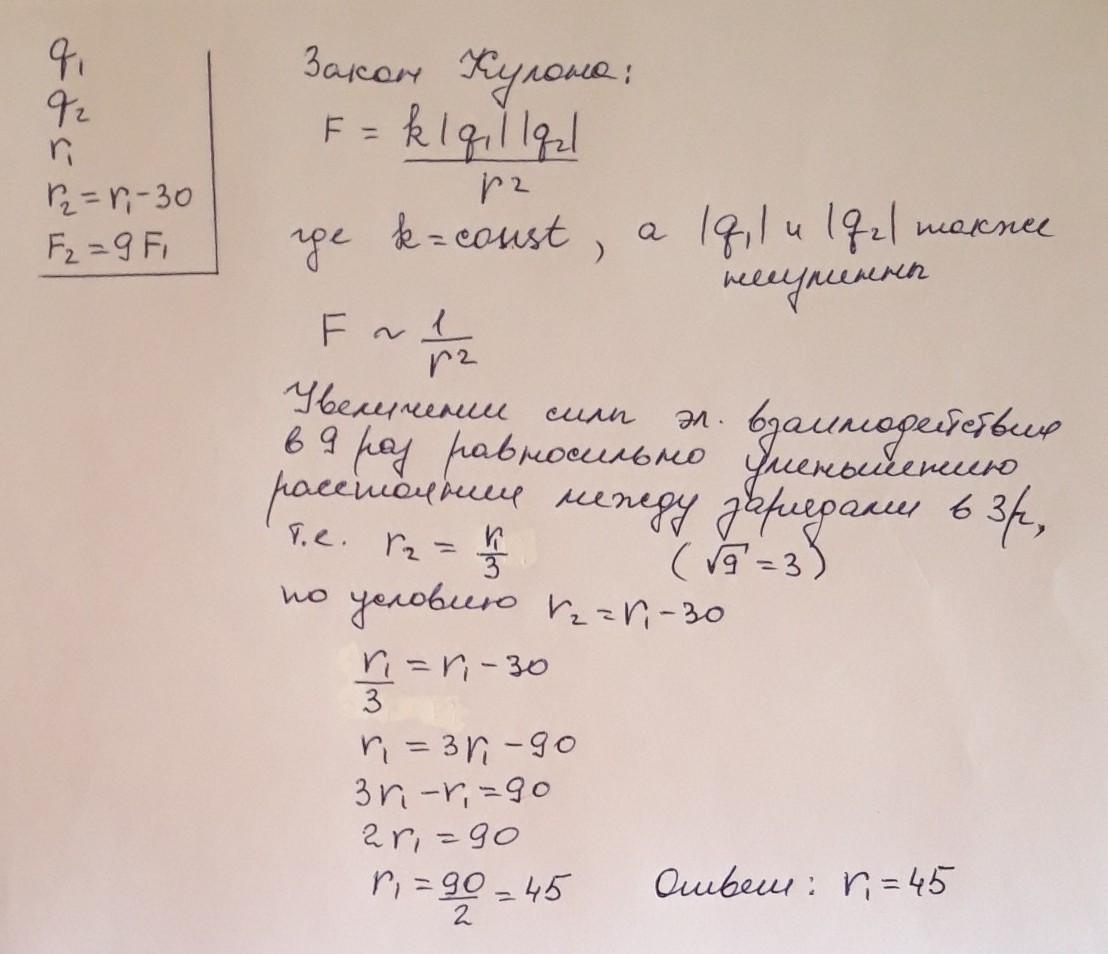 q₁
q₂
r₁
r₂ = r₁ - 30
F₂ = 9F₁
Закон Кулона:
F = k|q₁||q₂| / r²
где k = const, а |q₁| и |q₂| также
неизменны
F ~ 1/r²
Увеличении силы эл. взаимодействия
в 9 раз равносильно уменьшению
расстояния между зарядами в 3р,
т.е. r₂ = r₁/3 (√9 = 3)
по условию r₂ = r₁ - 30
r₁/3 = r₁ - 30
r₁ = 3r₁ - 90
3r₁ - r₁ = 90
2r₁ = 90
r₁ = 90/2 = 45 Ответ: r₁ = 45